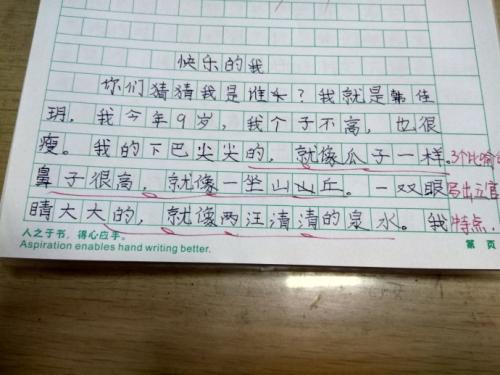 快乐的我
你们猜猜我是谁？我就是韩佳
玥，我今年9岁，我个子不高，也很
瘦。我的下巴尖尖的，就像瓜子一样。3个比喻句
鼻子很高，就像一坐山山丘。一双眼写出五官
睛大大的，就像两汪清清的泉水。我特点.
人之于书，得心应手。
Aspiration enables hand writing better.
第 页